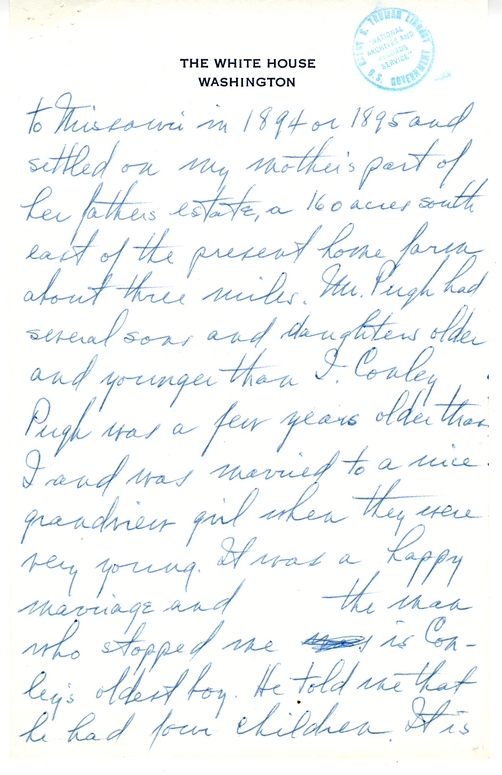 THE WHITE HOUSE
WASHINGTON
HARRY S. TRUMAN LIBRARY
"NATIONAL
ARCHIVES AND
RECORDS
SERVICE"
U.S. GOVERNMENT
to Missouri in 1894 or 1895 and
settled on my mother's part of
her fathers estate, a 160 acres south
east of the present home farm
about three miles. Mr. Pugh had
several sons and daughters older
and younger than I. Conley
Pugh was a few years older than
I and was married to a nice
grandview girl when they were
very young. It was a happy
marriage and the man
who stopped me is Con-
ley's oldest boy. He told me that
he had four children. It is